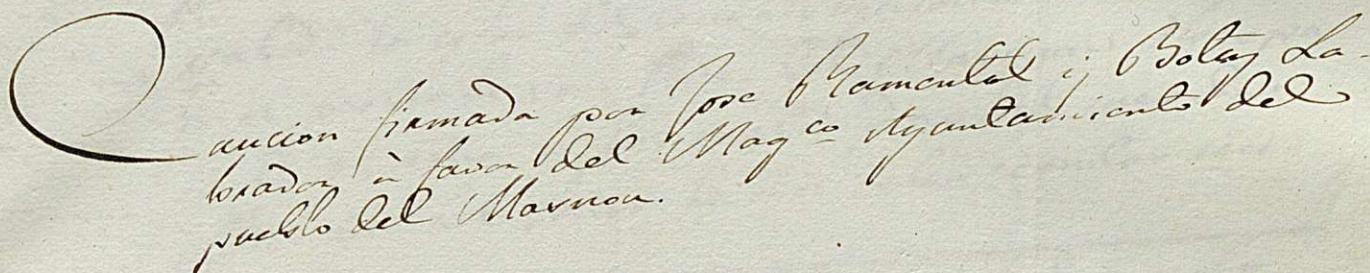 Caucion firmada por Jose Ramentol ij Botey La-
brador à favor del Mag.co Ayuntamiento del
pueblo del Masnou.